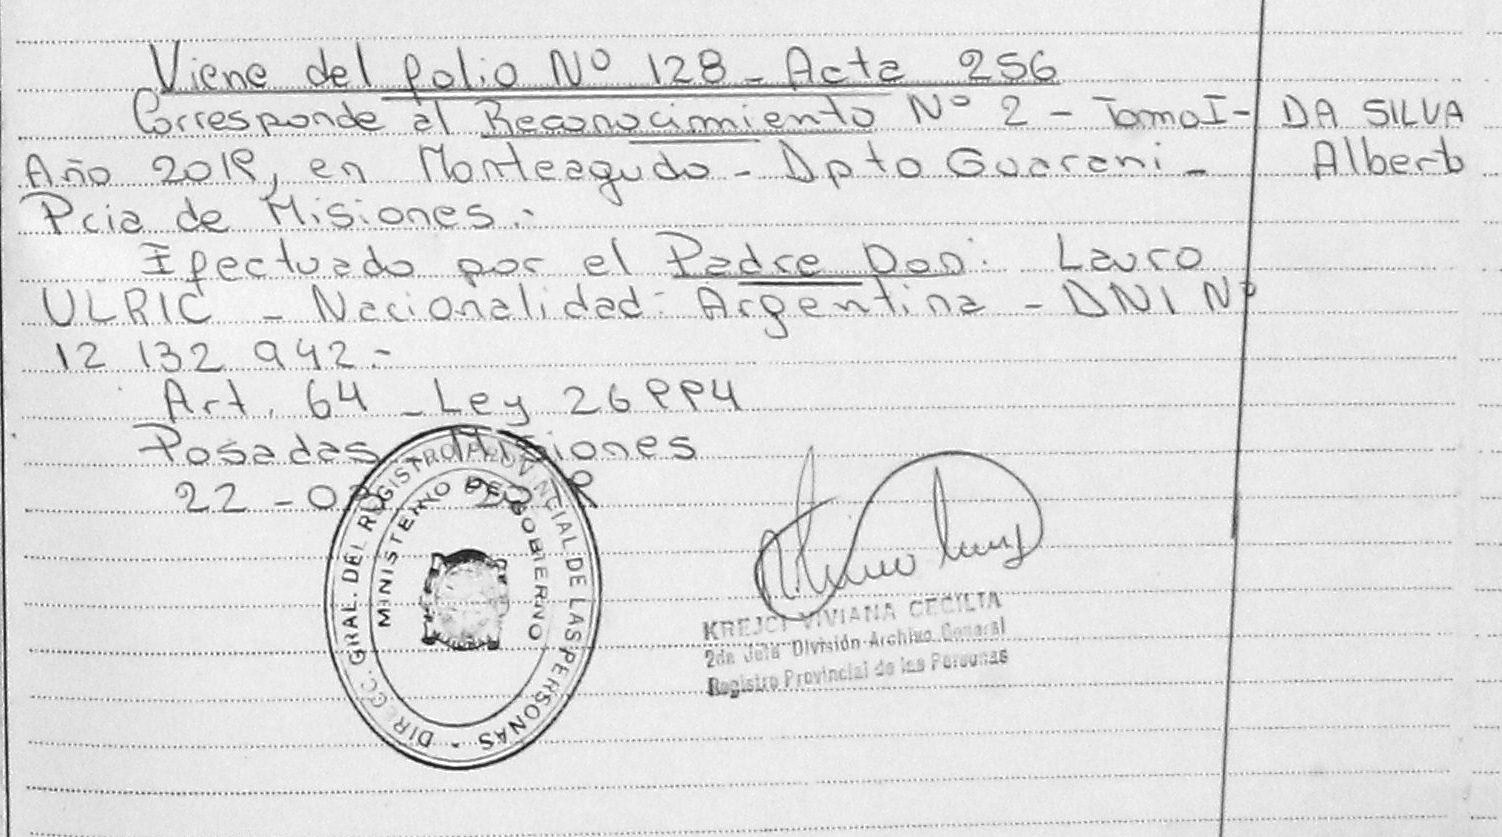 Viene del folio Nº 128 - Acta 256
Corresponde al Reconocimiento Nº 2 - Tomo I -
Año 2019, en Monteagudo - Dpto Guarani -
Pcia de Misiones.-
Efectuado por el Padre Don: Lauro
ULRIC - Nacionalidad: Argentina - DNI Nº
12 132 942.-
Art. 64 - Ley 26994
Posadas - Misiones
22 - 03
DA SILVA
Alberto
DIRECC. GRAL. DEL REGISTRO PROVINCIAL DE LAS PERSONAS
MINISTERIO DE GOBIERNO
KREJCI VIVIANA CECILIA
2da Jefa División Archivo General
Registro Provincial de las Personas